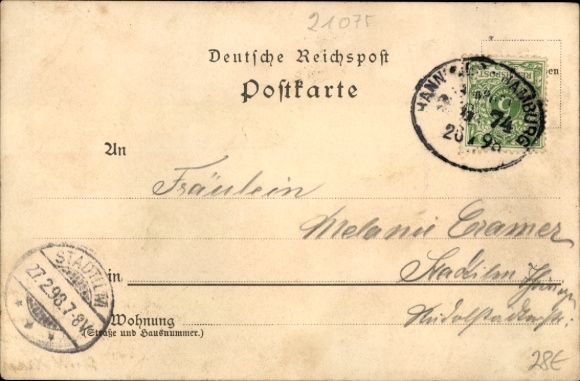 21075
Deutsche Reichspost
Postkarte
HANNOVER HAMBURG
74
REICHSPOST
5
An
Fräulein
Melanie Cramer
in Stadtilm Thüringen
Rudolstädterstr.
Wohnung
(Straße und Hausnummer.)
STADTILM
27.2.98.7-8V.
28€